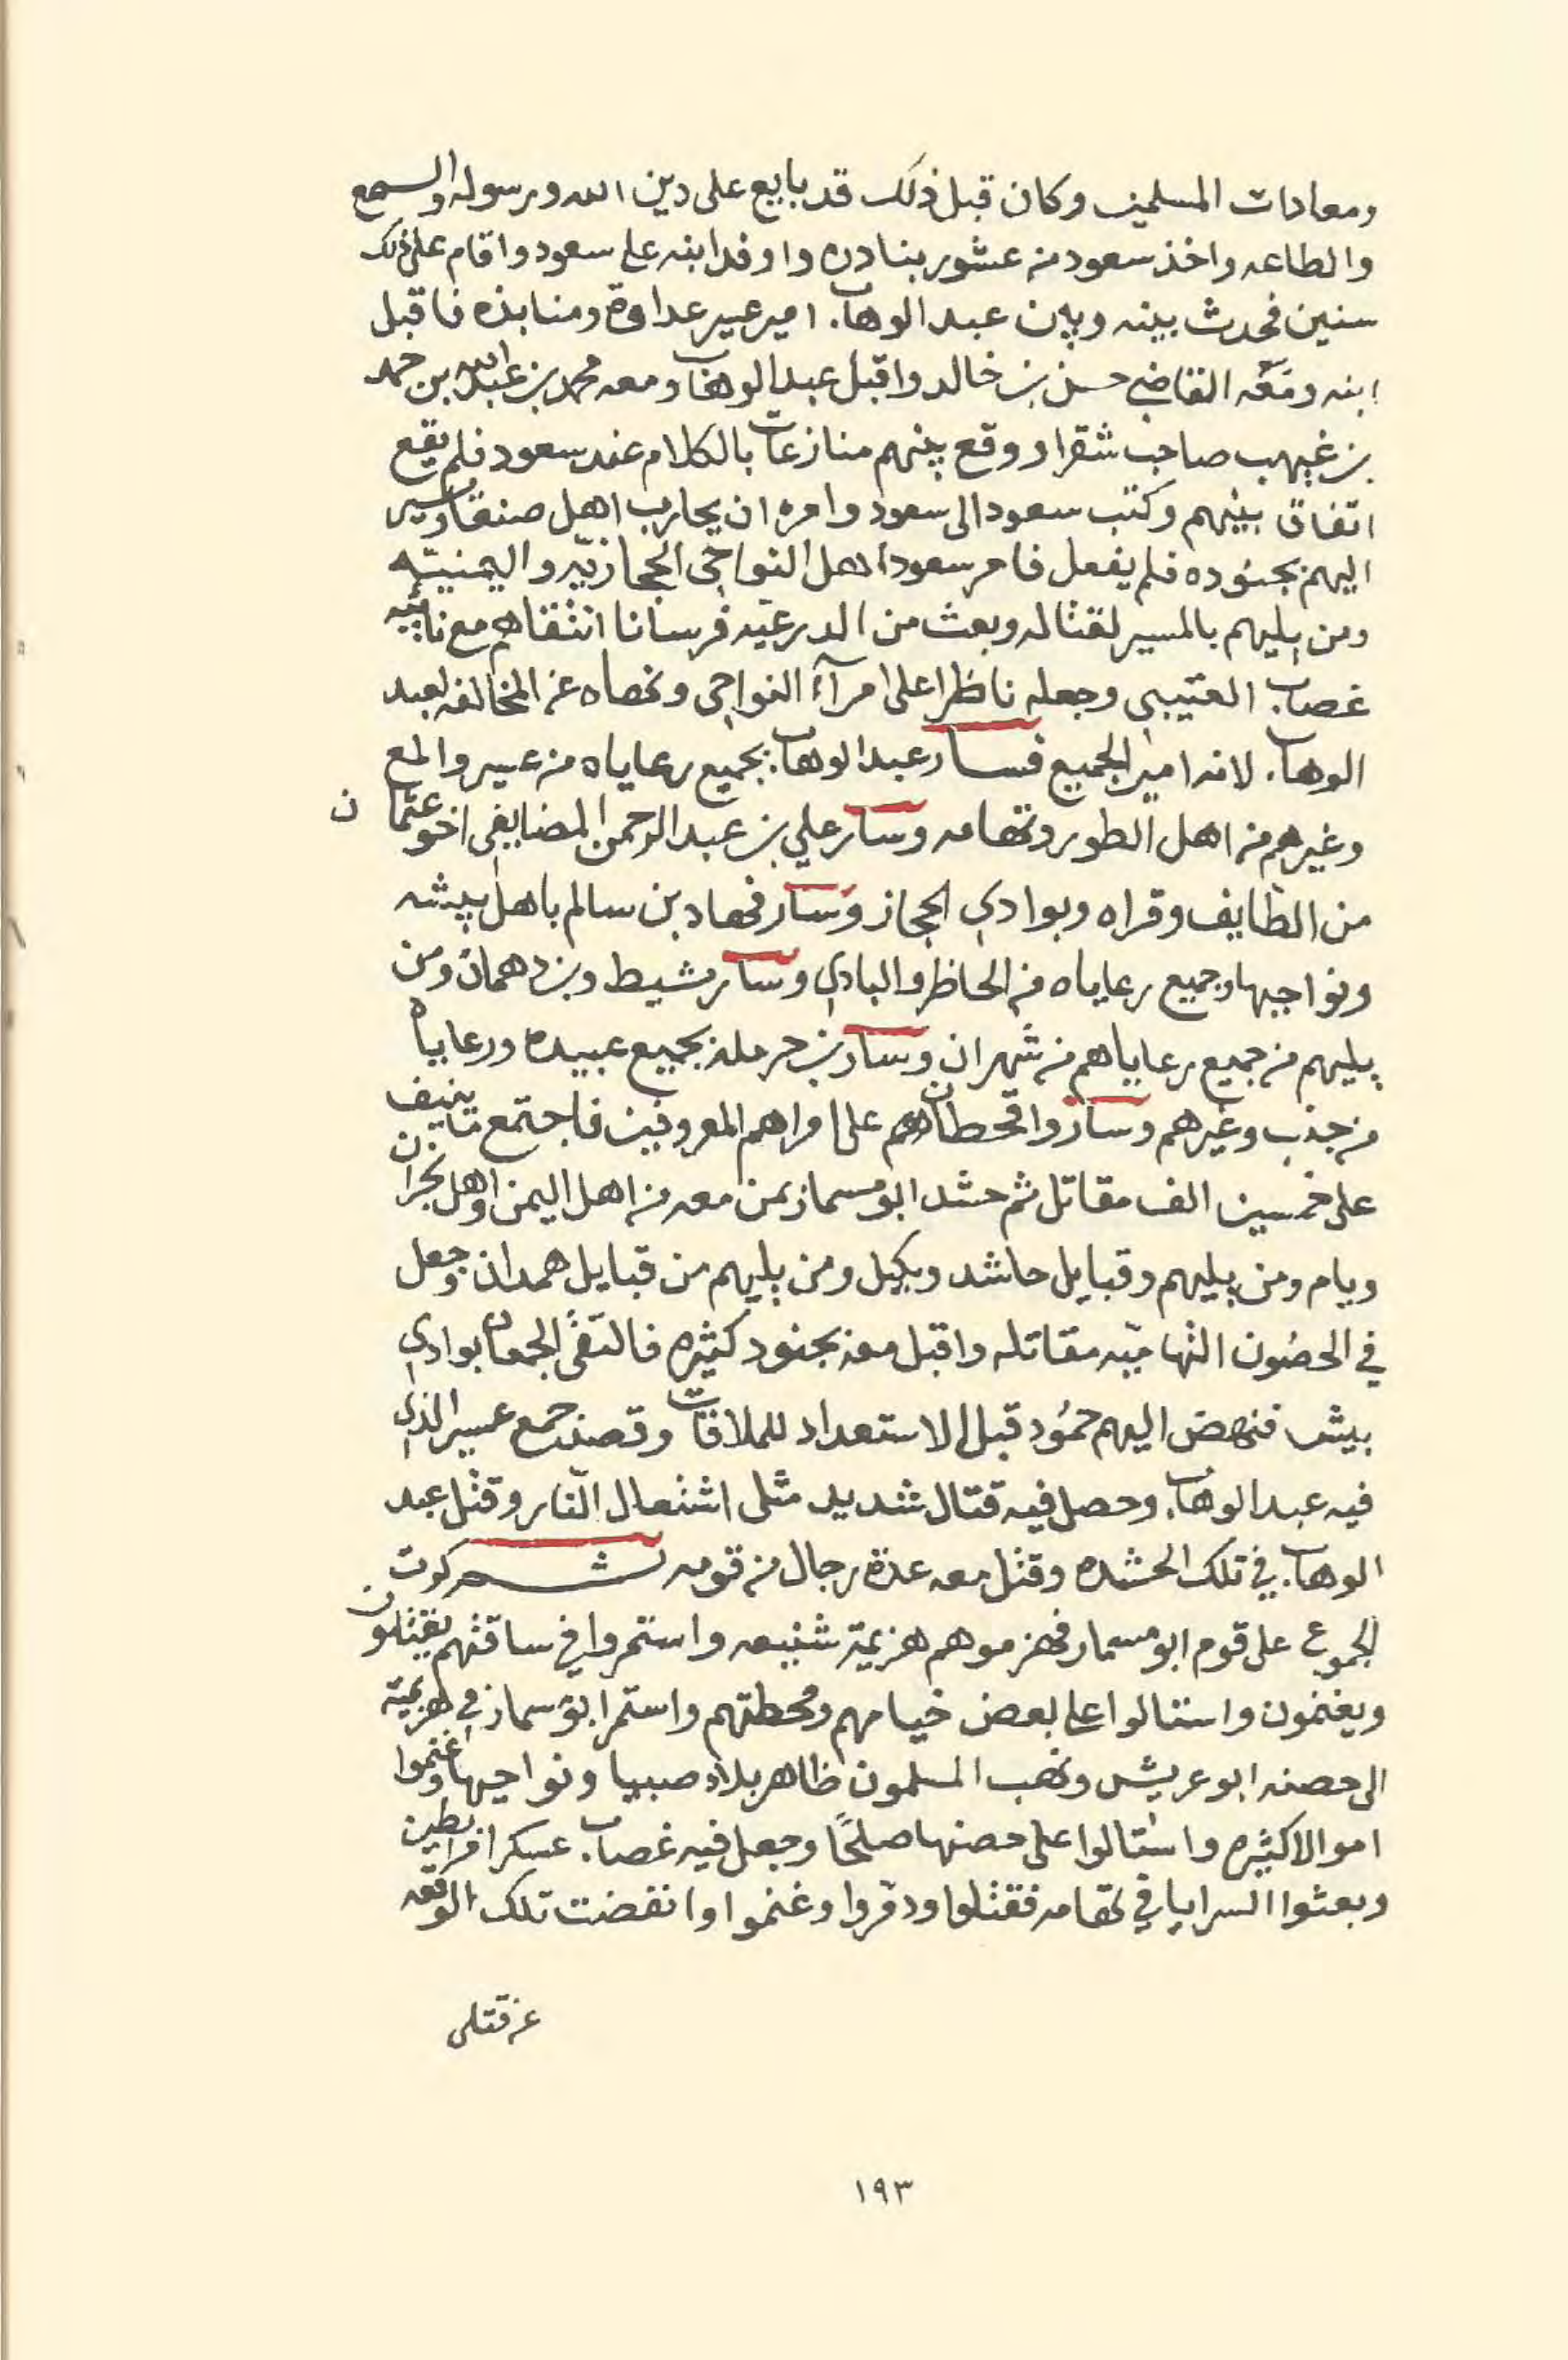 ومعادات المسلمين وكان قبل ذلك قد بايع على دين الله ورسوله والسمع
والطاعه واخذ سعود من عشور بنادره واوفد ابنه على سعود واقام على ذلك
سنين فحدث بينه وبين عبد الوهاب امير عسير عداوة ومنابذه فاقبل
ابنه ومعه القاضي حسن بن خالد واقبل عبد الوهاب ومعه محمد بن عبدالله بن حمد
بن غيهب صاحب شقرا ووقع بينهم منازعات بالكلام عند سعود فلم يقع
اتفاق بينهم وكتب سعود الى سعود وامره ان يحارب اهل صنعا ويسير
اليهم بجنوده فلم يفعل فامر سعود اهل النواحي الحجازيه واليمنيه
ومن يليهم بالمسير لقتاله وبعث من الدرعيه فرسانا انتقاهم مع نائبه
غصاب العتيبي وجعله ناظرا على امرآء النواحي ونهاه عن المخالفه لعبد
الوهاب لانه امير الجميع فسار عبد الوهاب بجميع رعاياه من عسير والمع
وغيرهم من اهل الطور وتهامه وسار علي بن عبد الرحمن المضايفي اخو عثمان
من الطايف وقراه وبوادي الحجاز وسار فهاد بن سالم باهل بيشه
ونواحيها وجميع رعاياه من الحاظر والبادي وسار مشيط وبن دهمان ومن
يليهم من جميع رعاياهم من شهران وسار بن حرمله بجميع عبيده ورعاياه
من جنب وغيرهم وساروا قحطان وهم على امراهم المعروفين فاجتمع ما ينيف
على خمسين الف مقاتل ثم حشد ابو مسمار بمن معه من اهل اليمن واهل نجران
ويام ومن يليهم وقبايل حاشد وبكيل ومن يليهم من قبايل همدان وجعل
في الحصون التهاميه مقاتله واقبل معه بجنود كثيره فالتقى الجمعان بوادي
بيش فنهض اليهم حمود قبل الاستعداد للملاقات وقصد جمع عسير الذي
فيه عبد الوهاب وحصل فيه قتال شديد مثل اشتعال النار وقتل عبد
الوهاب في تلك الحشده وقتل معه عدة رجال من قومه ثم كرت
الجموع على قوم ابو مسمار فهزموهم هزيمة شنيعه واستمروا في ساقتهم يقتلون
ويغنمون واستالوا على بعض خيامهم ومحطتهم واستمر ابو مسمار في هزيمته
الى حصنه ابو عريش ونهب المسلمون ظاهر بلاد صبيا ونواحيها وغنموا
اموالا كثيره واستالوا على حصنها صلحًا وجعل فيه غصاب عسكرا مرابطين
وبعثوا السرايا في تهامه فقتلوا ودمروا وغنموا وانقضت تلك الوقعه
عن قتلى
١٩٣